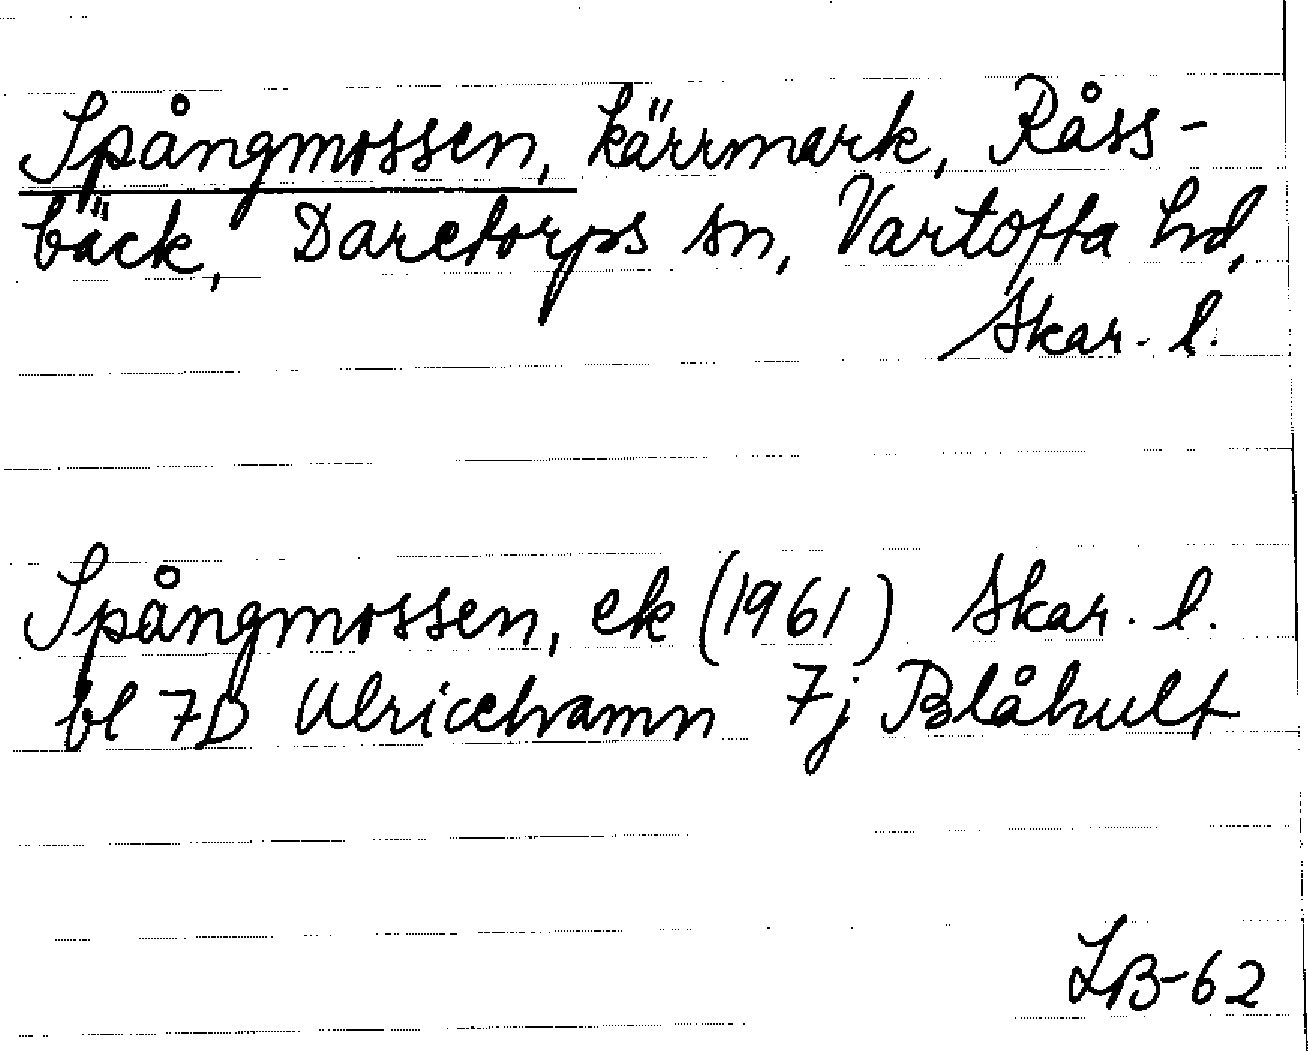 Spångmossen, kärrmark, Råss-
bäck, Daretorps sn, Vartofta hd,
Skar. l.
Spångmossen, ek (1961) Skar. l.
bl 7D Ulricehamn 7j Blåhult
LB-62